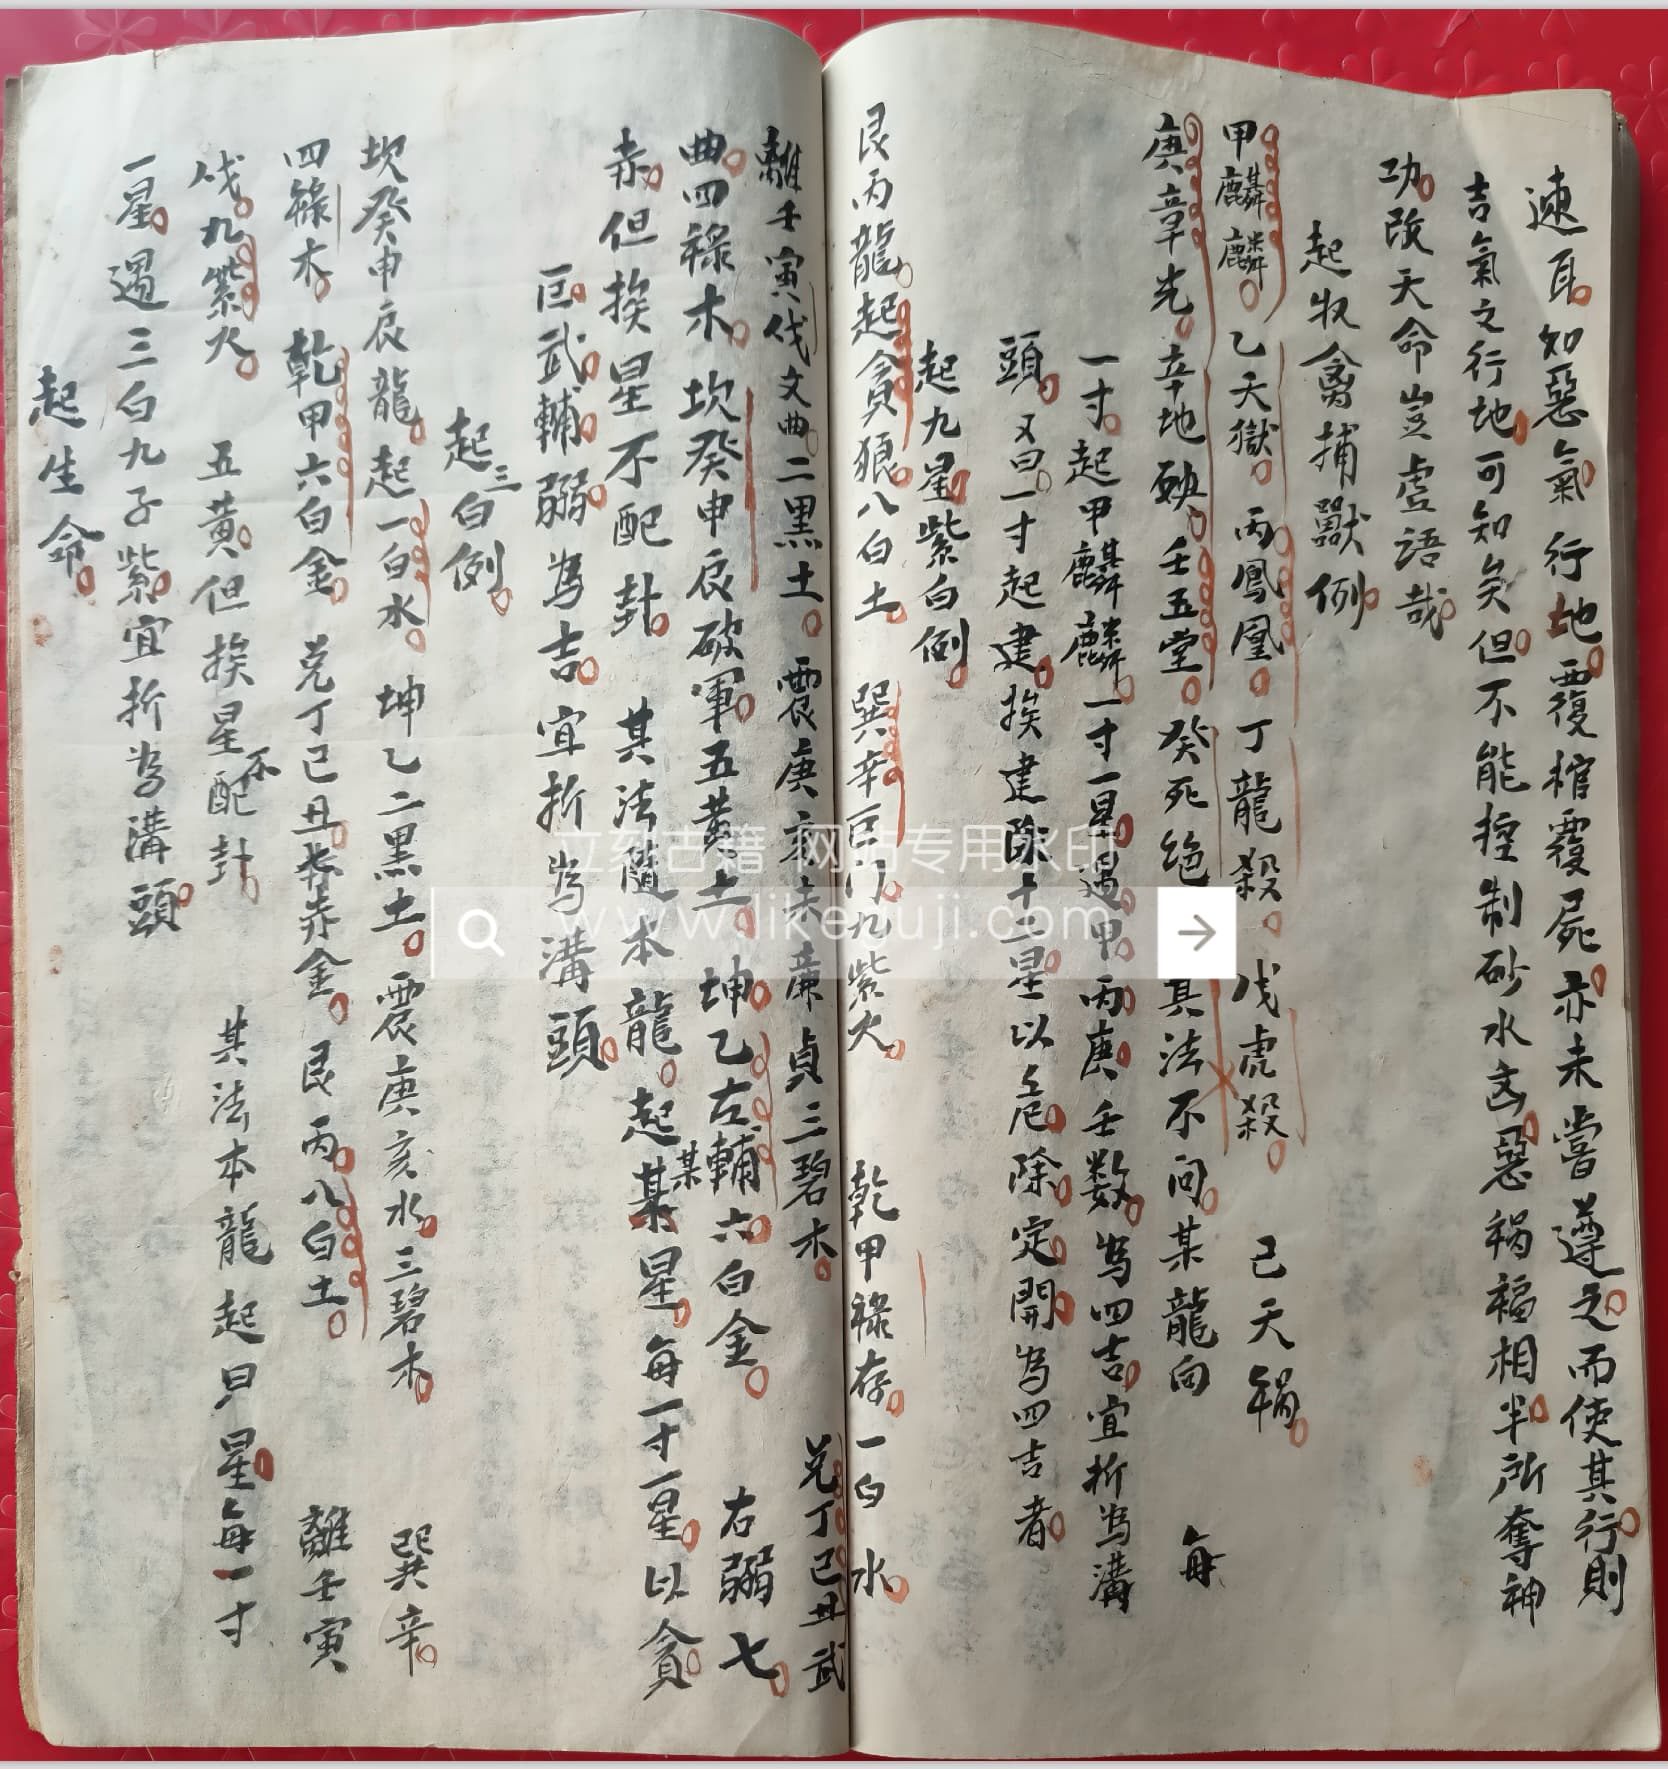 速耳如惡氣行地覆棺覆屍亦未嘗遵之而使其行則
吉氣之行地可知矣但不能控制砂水凶惡禍福相半所奪神
功改天命豈虛語哉
起牧禽捕獸例
甲麒麟乙天獄丙鳳凰丁龍殺戊虎殺己天禍
庚章光辛地殃壬五堂癸死絕其法不问某龍向每
一寸起甲麒麟一寸一星遇甲丙庚壬数為四吉宜折為溝
頭又曰一寸起建挨建除十二星以危除定開為四吉者
起九星紫白例
艮丙龍起貪狼八白土巽辛巨门九紫火乾甲祿存一白水
離壬寅伐文曲二黑土震庚亥未廉貞三碧木兑丁巳丑武
曲四祿木坎癸申辰破軍五黄土坤乙左輔六白金右弼七
赤但挨星不配卦其法隨本龍起某某星每一寸一星以貪
巨武輔弼為吉宜折為溝頭
起三白例
坎癸申辰龍起一白水坤乙二黑土震庚亥水三碧木巽辛
四綠木乾甲六白金兑丁巳丑赤金艮丙八白土離壬寅
伐九紫火五黄但挨星不配卦其法本龍起只星每一寸
一星遇三白九子紫宜折為溝頭
起生命
立刻古籍 网站专用水印
www.likeguji.com